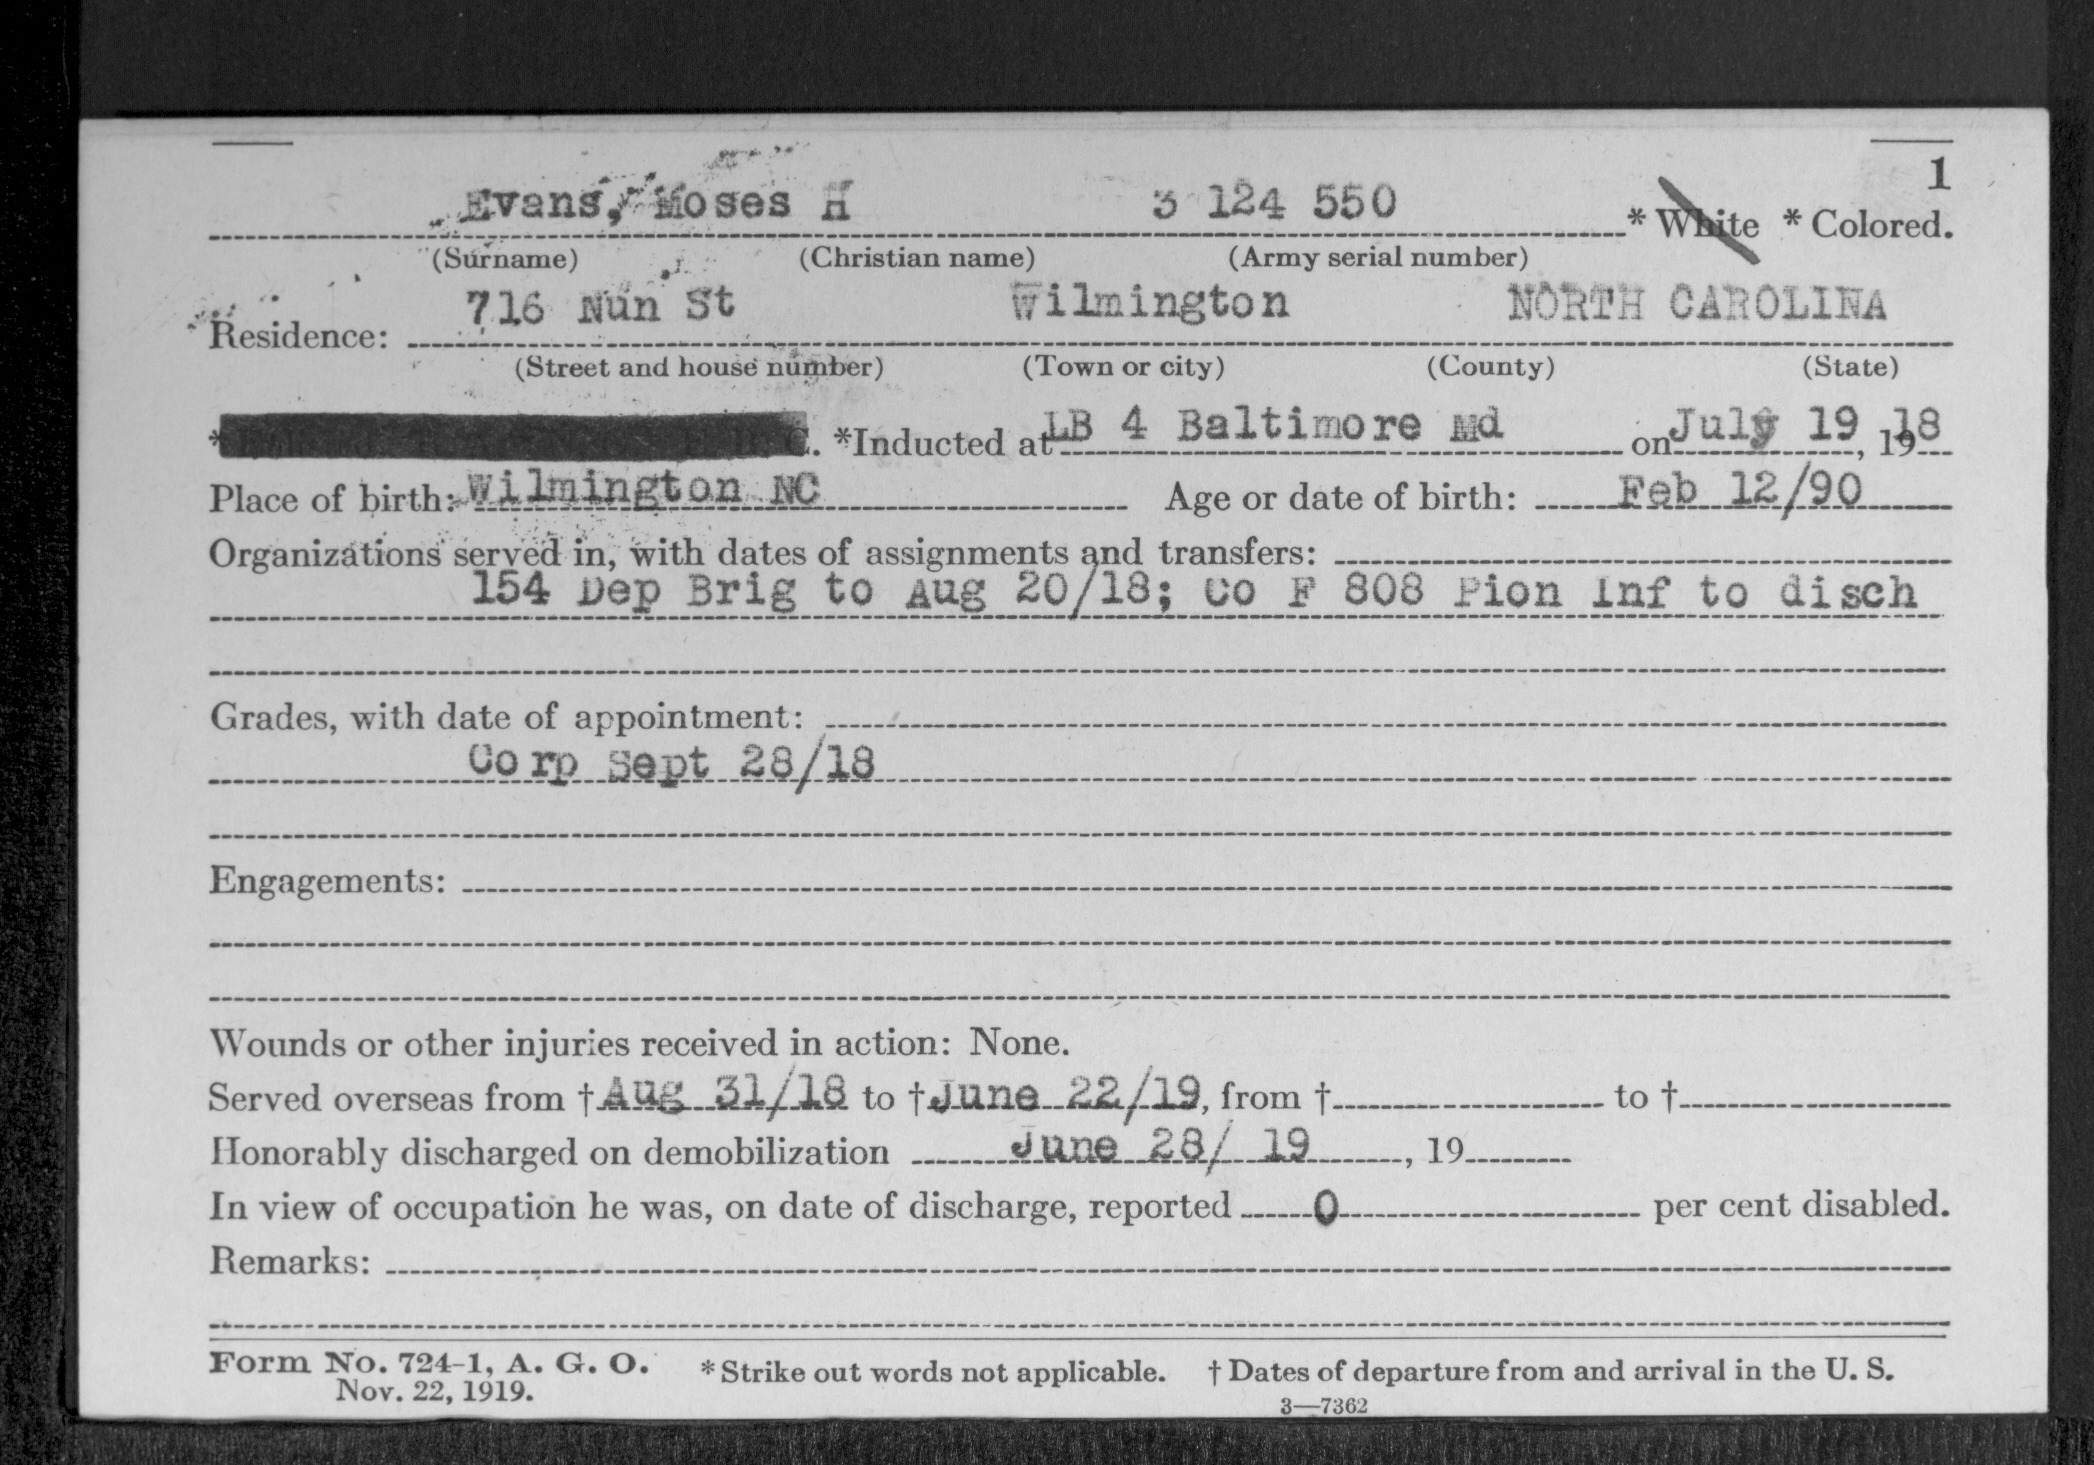 1
Evans, Moses H 3 124 550 * White * Colored.
(Surname) (Christian name) (Army serial number)
716 Nun St Wilmington NORTH CAROLINA
Residence:
(Street and house number) (Town or city) (County) (State)
* C. *Inducted at LB 4 Baltimore Md on July 19, 1918
Place of birth: Wilmington NC Age or date of birth: Feb 12/90
Organizations served in, with dates of assignments and transfers:
154 Dep Brig to Aug 20/18; Co F 808 Pion Inf to disch
Grades, with date of appointment:
Corp Sept 28/18
Engagements:
Wounds or other injuries received in action: None.
Served overseas from † Aug 31/18 to † June 22/19, from † to †
Honorably discharged on demobilization June 28/ 19, 19
In view of occupation he was, on date of discharge, reported 0 per cent disabled.
Remarks:
Form No. 724-1, A. G. O. * Strike out words not applicable. † Dates of departure from and arrival in the U. S.
Nov. 22, 1919.
3—7362